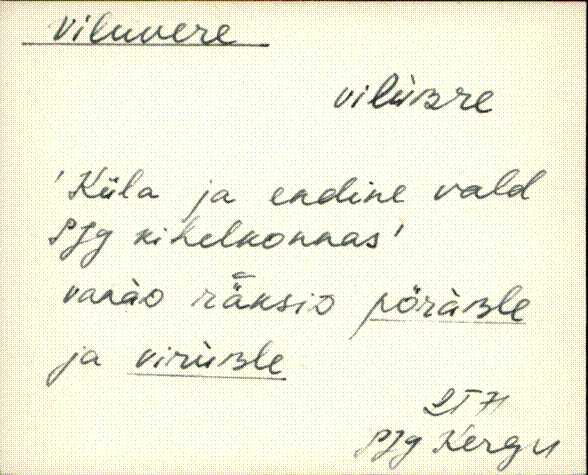 Viluvere
vilùʙre
'Küla ja endine vald
PJg kihelkonnas'
vanàᴅ räksiᴅ pöràʙle
ja virùʙle
PJg Kergu